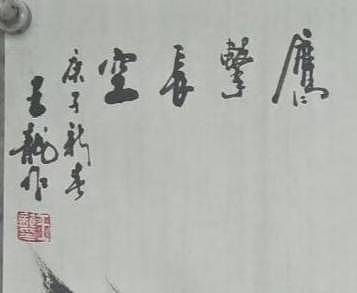 鷹擊長空
庚子新春
玉龍作